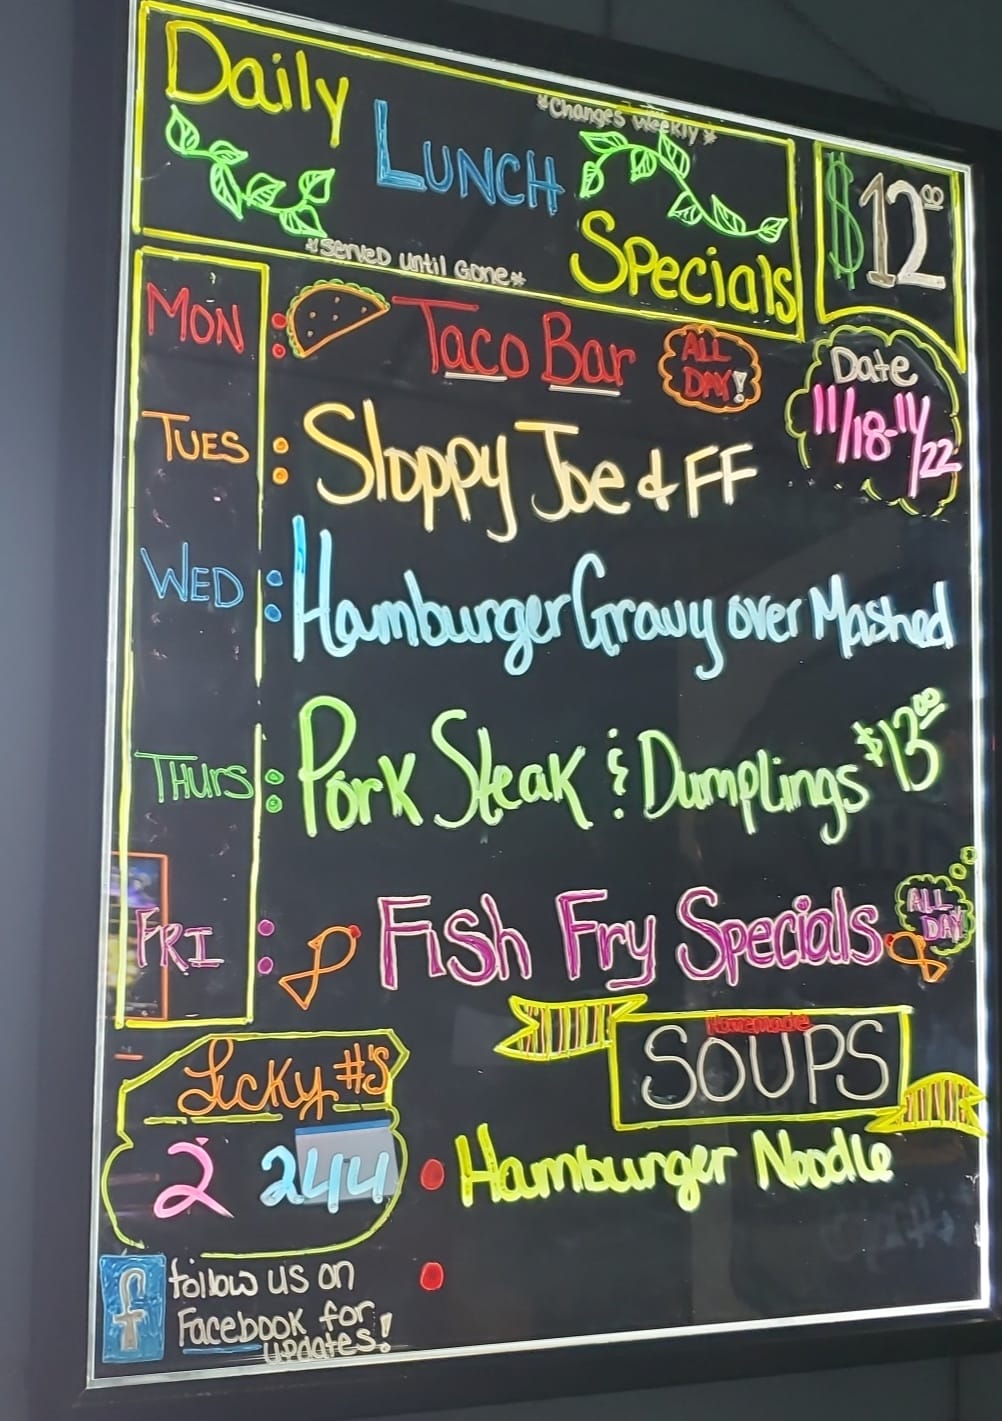 Daily
*Changes Weekly*
LUNCH
Specials
*Served Until Gone*
$12.00
MON : Taco Bar ALL DAY!
Date
11/18-11/22
TUES : Sloppy Joe & FF
WED : Hamburger Gravy over Mashed
THURS : Pork Steak & Dumplings $13.00
FRI : Fish Fry Specials ALL DAY
Lucky #'s
2 244
Homemade
SOUPS
• Hamburger Noodle
•
f follow us on
Facebook for
updates!